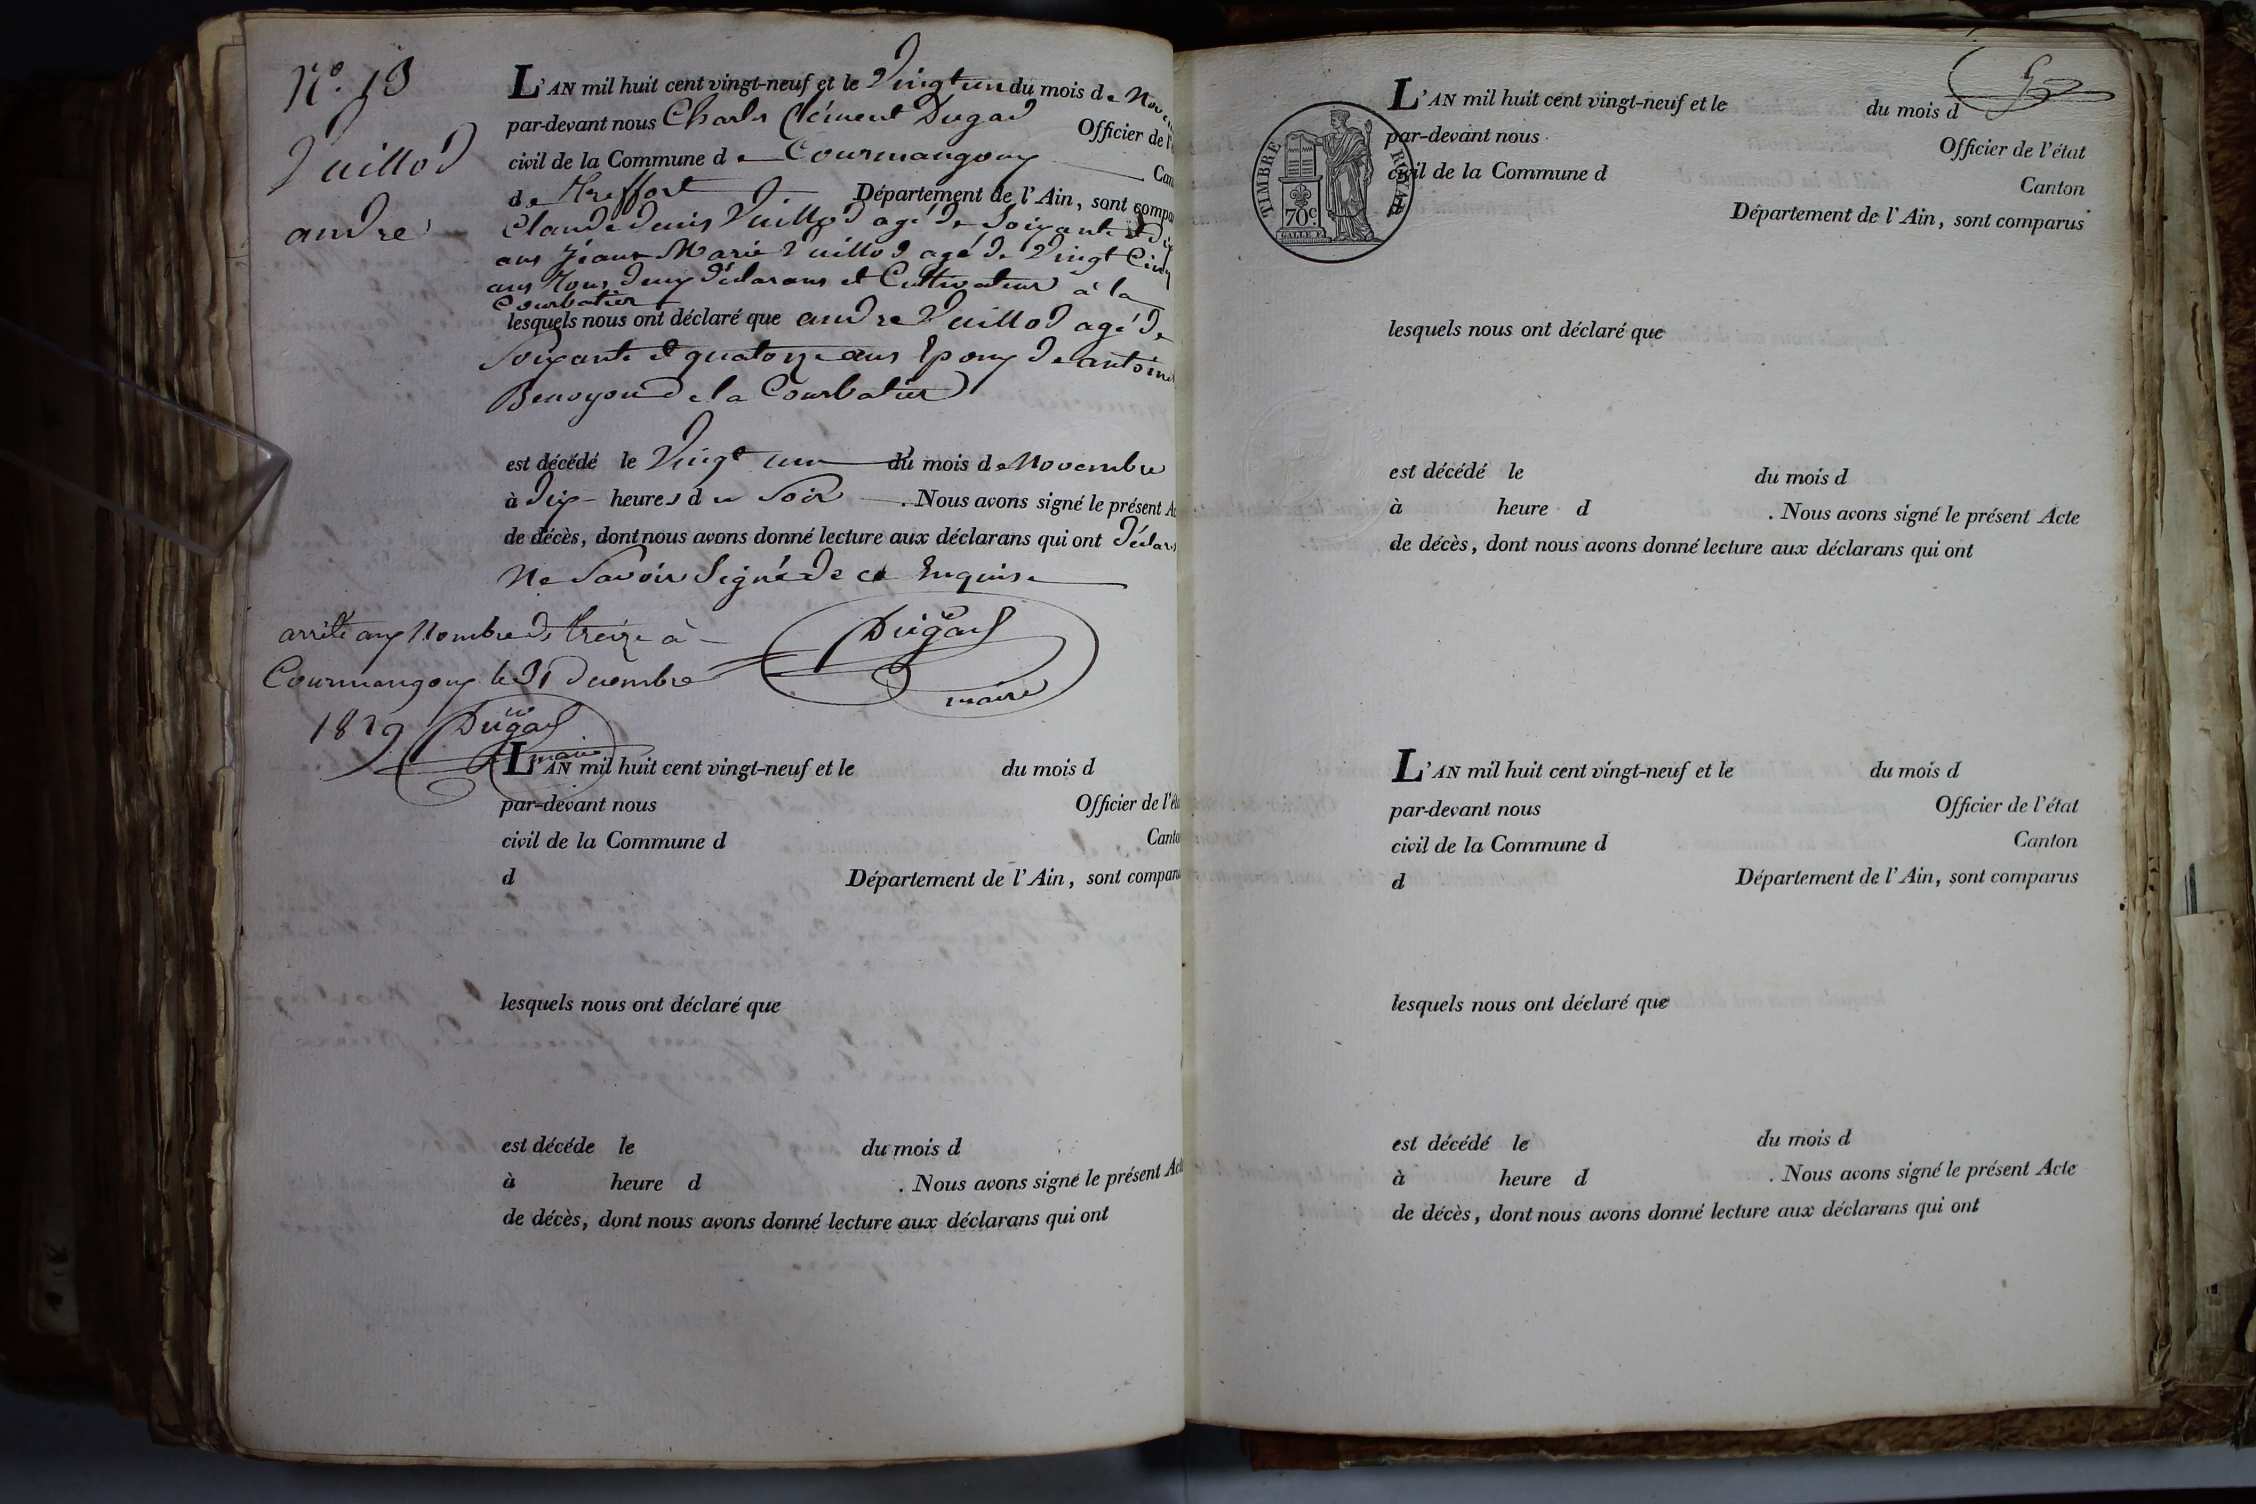 N.º 13
Vuillod
andré
L'AN mil huit cent vingt-neuf et le Vingt un du mois de Nov
par-devant nous Charles Clément Dugad Officier de l'é
civil de la Commune de Courmangoux Can
de Treffort Département de l'Ain, sont compar
Claude denis Vuillod agé de Soixante et dix
ans Jéan Marie Vuillod agé de Vingt Cinq
ans Tous deux déclarans et Cultivateur à la
Courbatier
lesquels nous ont déclaré que andre Vuillod agé de
Soixante et quatorze ans Epoux de antoine
de la Courbatier
est décédé le Vingt un du mois de Novembre
à dix heures du Soir . Nous avons signé le présent Ac
de décès, dont nous avons donné lecture aux déclarans qui ont déclaré
Ne Savoir Signé de ce Enquise
arrêté aux Nombre de treize à
Courmangoux le 31 decembre
1829
Dugad
maire
Dugad
maire
L'AN mil huit cent vingt-neuf et le du mois d
par-devant nous Officier de l'éta
civil de la Commune d Canto
d Département de l'Ain, sont comparu
lesquels nous ont déclaré que
est décéde le du mois d
à heure d . Nous avons signé le présent Acte
de décès, dont nous avons donné lecture aux déclarans qui ont
TIMBRE ROYAL
70c
L'AN mil huit cent vingt-neuf et le du mois d
par-devant nous Officier de l'état
civil de la Commune d Canton
Département de l'Ain, sont comparus
lesquels nous ont déclaré que
est décédé le du mois d
à heure d . Nous avons signé le présent Acte
de décès, dont nous avons donné lecture aux déclarans qui ont
L'AN mil huit cent vingt-neuf et le du mois d
par-devant nous Officier de l'état
civil de la Commune d Canton
d Département de l'Ain, sont comparus
lesquels nous ont déclaré que
est décédé le du mois d
à heure d . Nous avons signé le présent Acte
de décès, dont nous avons donné lecture aux déclarans qui ont